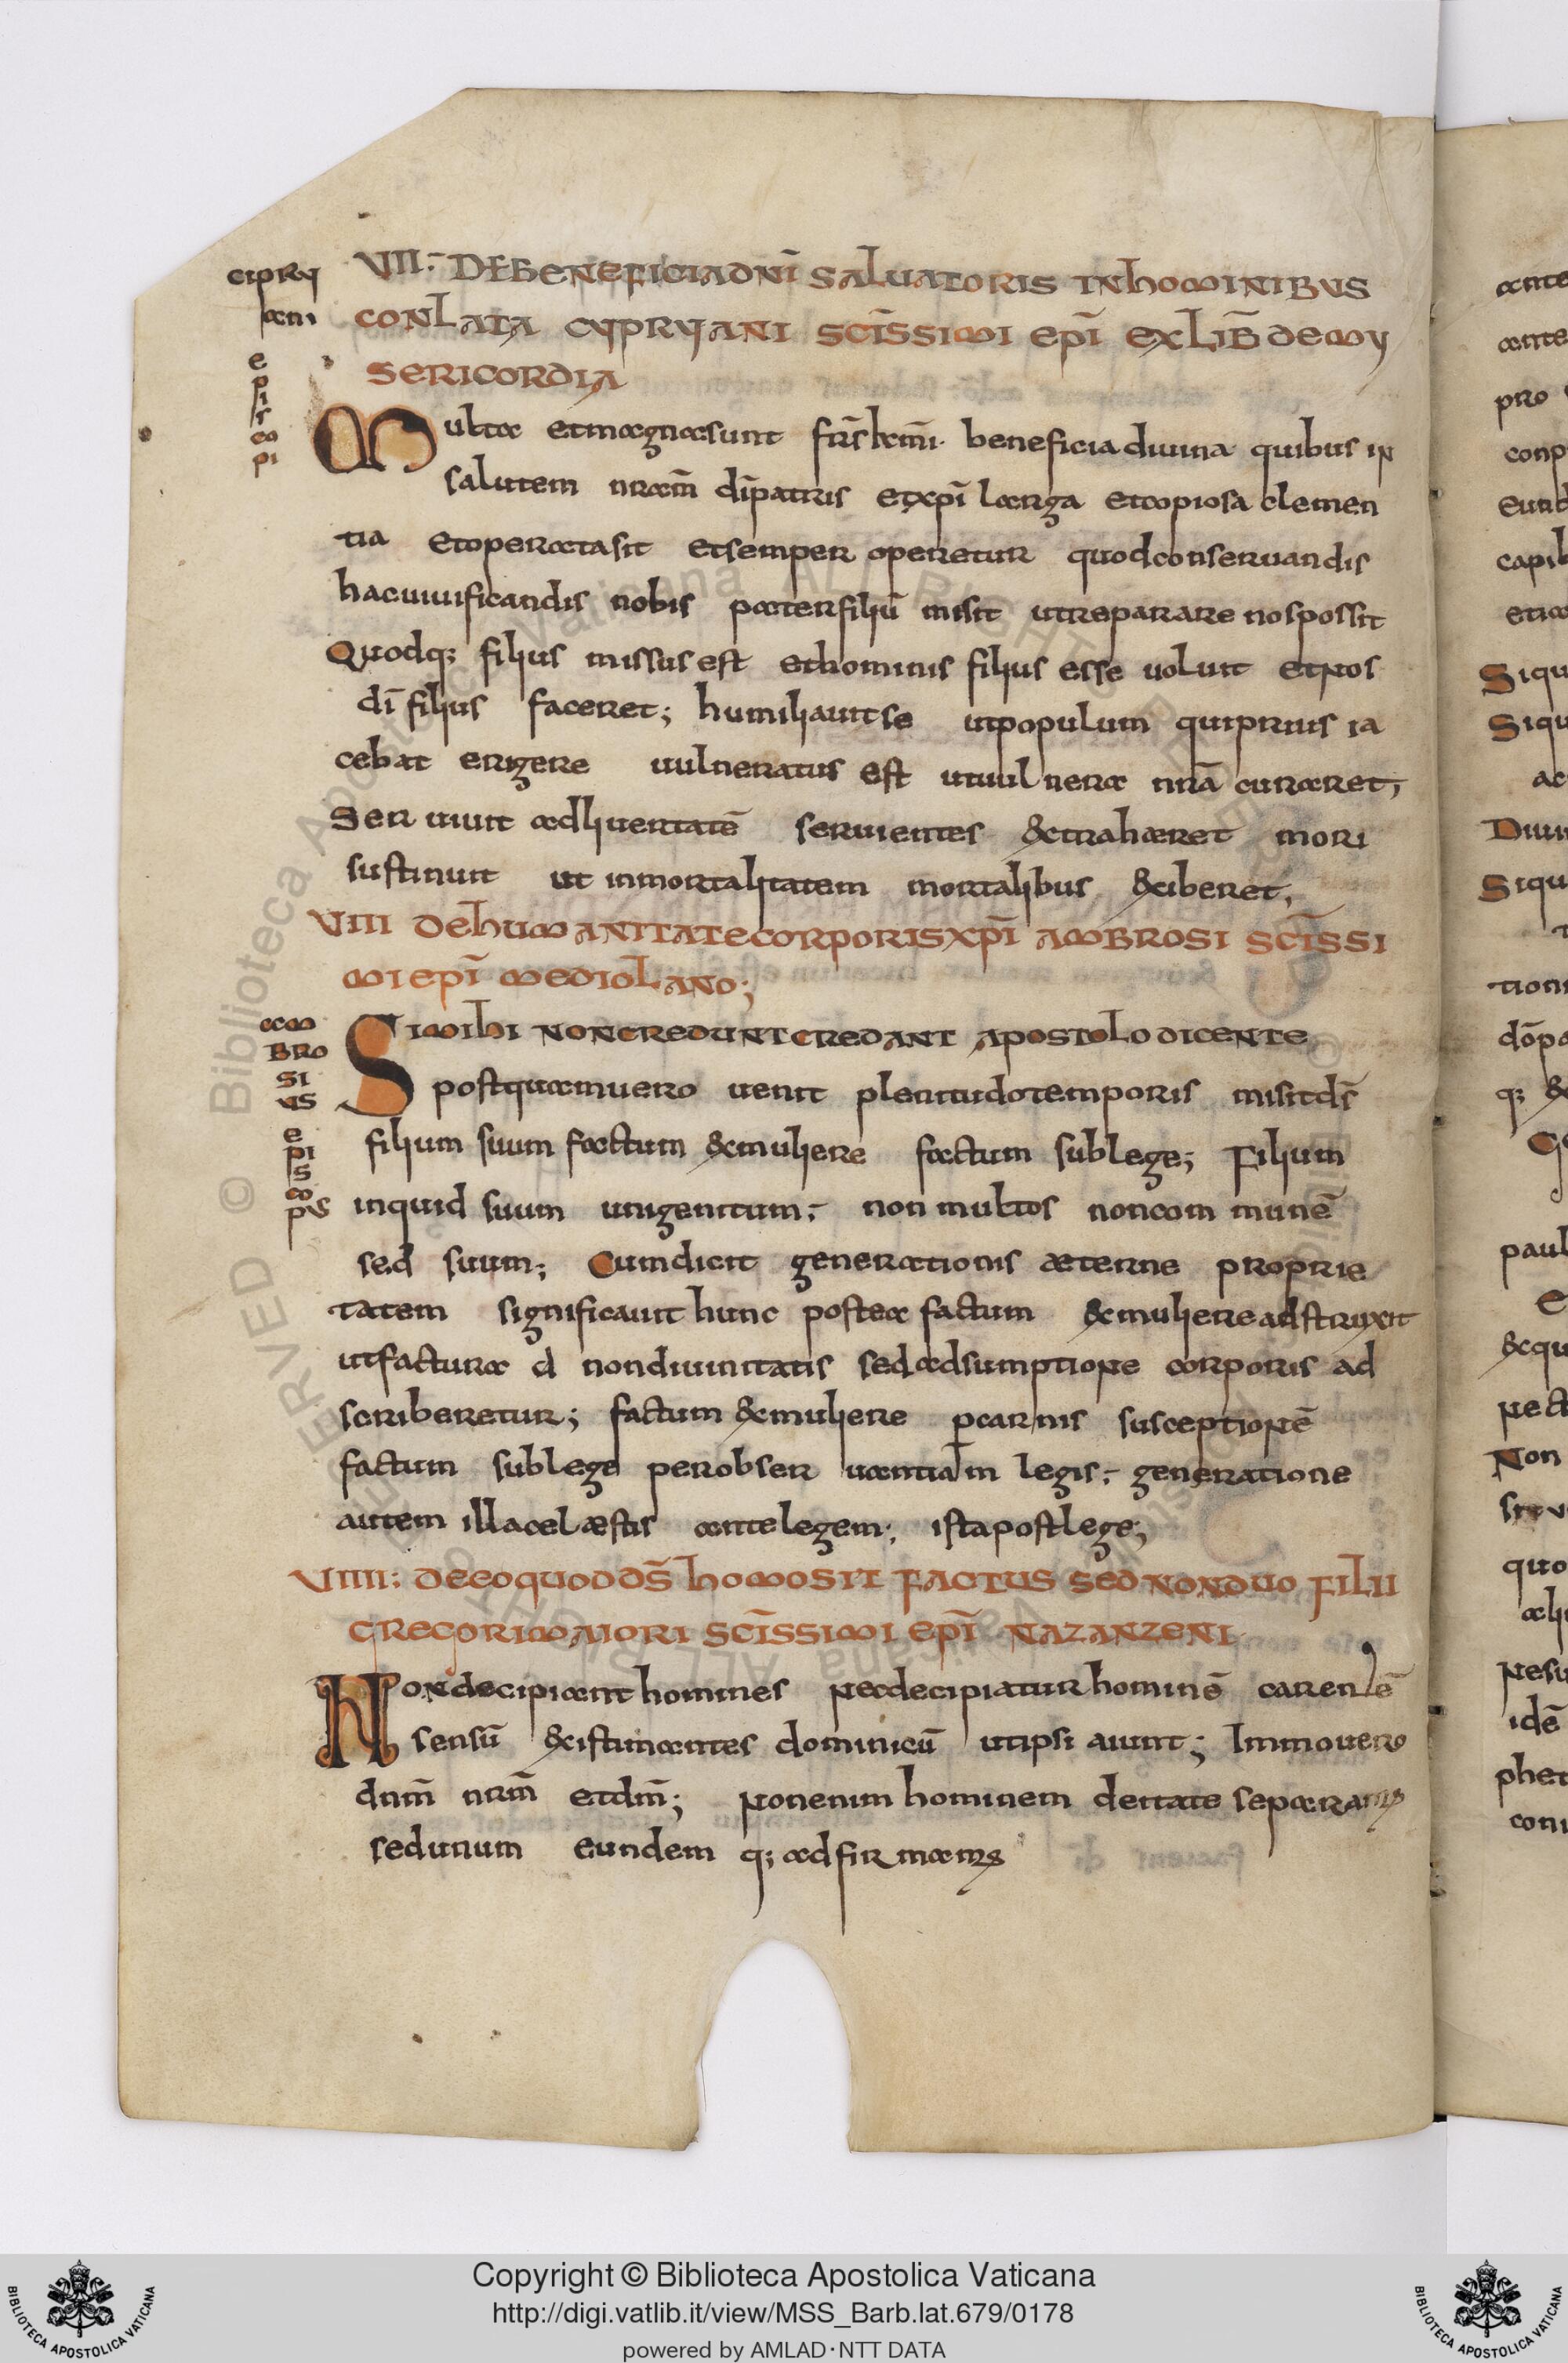 VII: DE BENEFICIA DNĪ SALUATORIS IN HOMINIBUS
CONLATA CYPRYANI SCĪSSIMI EPĪ EX LIB̄ DE MY
SERICORDIA
cipry
ani
e
pi
s
co
pi
Multa et magna sunt fr̄s kmī. beneficia diuina quibus in
salutem nram̄ dī patris et xpī larga et copiosa clemen
tia et operata sit et semper operetur quod conseruandis
hac uiuificandis nobis pater filiū misit ut reparare nos possit
Quodq; filius missus est et hominis filius esse uoluit et nos
dī filius faceret; humiliauit se ut populum qui prius ia
cebat erigere uulneratus est ut uulnera nr̄a curaret;
Seruiuit ad liuertatē seruientes &ctrahæret mori
sustinuit ut inmortalitatem mortalibus &ciberet;
VIII DE HUMANITATE CORPORIS XPĪ AMBROSI SCĪSSI
MI EPĪ MEDIOLANO;
am
BRO
SI
US
e
pi
s
co
pus
SI MIHI NON CREDUNT CREDANT APOSTOLO DICENTE
postquam uero uenit plenitudo temporis misit ds̄
filium suum factum &cmuliere factum sub lege; Filium
inquid suum unigenitum; non multos non com munē
sed suum; Cum dicit generationis æterne proprie
tatem significauit hunc postea factum &cmuliere adstruxit
ut factura d non diuinitatis sed adsumptione corporis ad
scriberetur; factum &cmuliere p carnis susceptionē
factum sub lege per obseruantiam legis; generatione
autem illa celæstis ante legem; ista post lege;
VIIII: DE EO QUOD DS̄ HOMO SIT FACTUS SED NON DUO FILII
GREGORI MAIORI SCĪSSIMI EPĪ NAZANZENI
Non decipiant homines nec decipiatur hominē carentē
sensū &cistimantes dominicū ut ipsi aiunt; Immo uero
dnm̄ nrm̄ et dm̄; Non enim hominem deitate separamus
sed unum eundem q; adfirmamus
ante
ante
pro
conp
eund
capib
Siqu
Siqu
ac
Diui
Siqu
tioni
dōpo
q; &
paul
&cqu
nect
Non
quo
idē
phet
coni
Copyright © Biblioteca Apostolica Vaticana
http://digi.vatlib.it/view/MSS_Barb.lat.679/0178
powered by AMLAD·NTT DATA
BIBLIOTECA APOSTOLICA VATICANA
BIBLIOTECA APOSTOLICA VATICANA